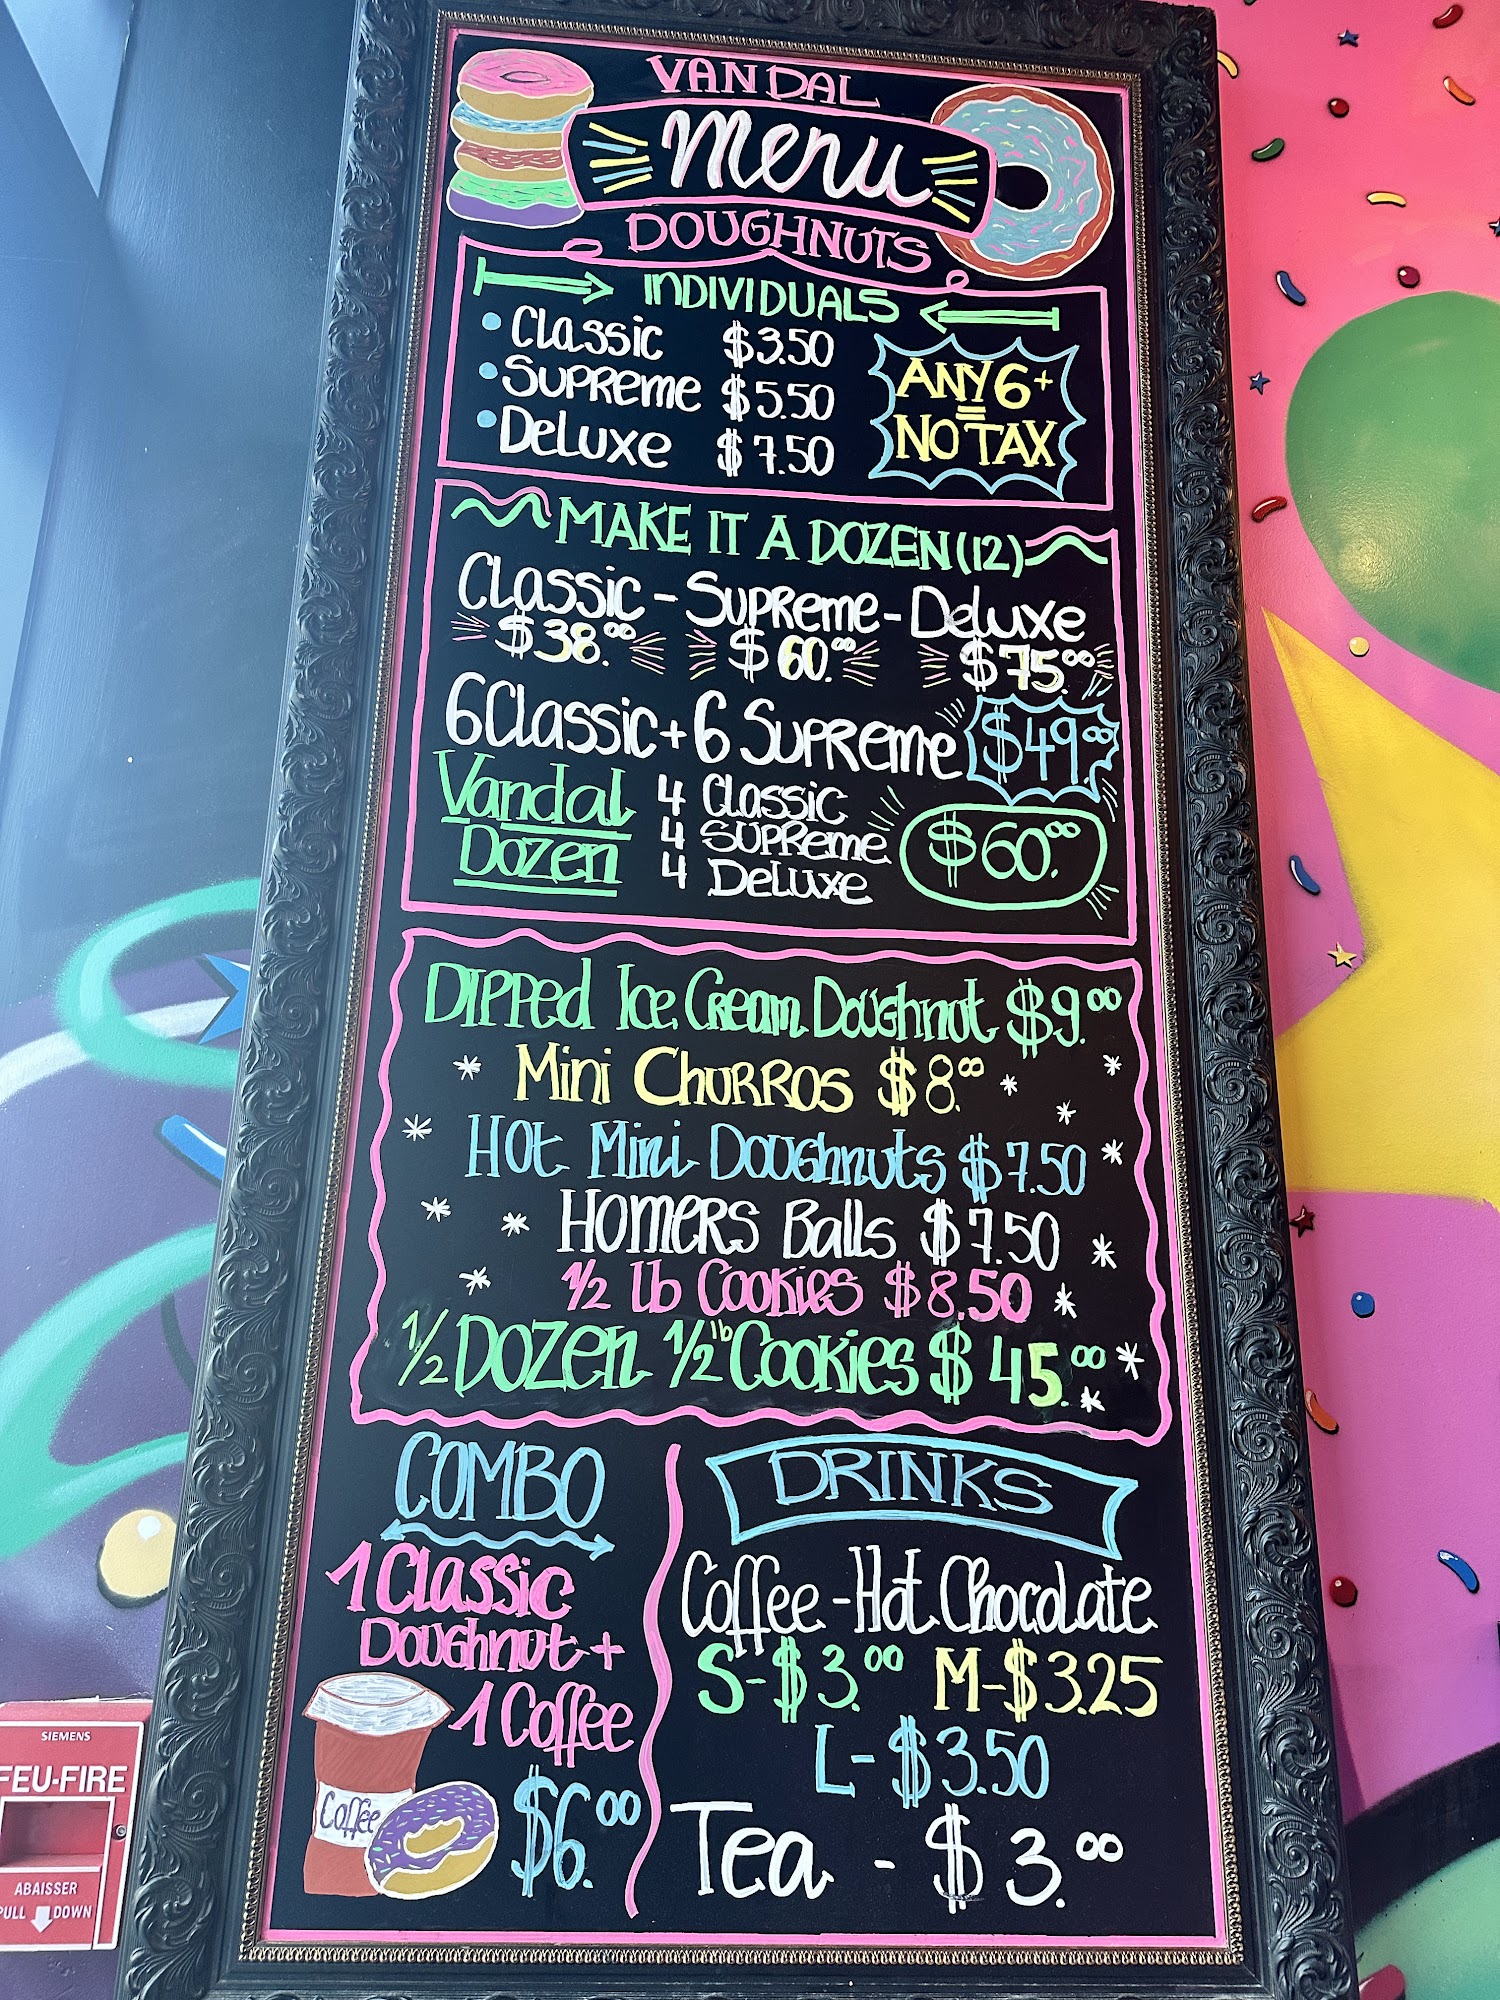 VANDAL
Menu
DOUGHNUTS
INDIVIDUALS
• Classic $3.50
• Supreme $5.50
• Deluxe $7.50
ANY 6+
=
NO TAX
MAKE IT A DOZEN (12)
Classic - Supreme - Deluxe
$38.00 $60.00 $75.00
6 Classic + 6 Supreme $49.00
Vandal Dozen
4 Classic
4 Supreme
4 Deluxe
$60.00
Dipped Ice Cream Doughnut $9.00
Mini Churros $8.00
Hot Mini Doughnuts $7.50
Homers Balls $7.50
1/2 lb Cookies $8.50
1/2 Dozen 1/2 lb Cookies $45.00
COMBO
1 Classic
Doughnut +
1 Coffee
$6.00
Coffee
DRINKS
Coffee - Hot Chocolate
S - $3.00 M - $3.25
L - $3.50
Tea - $3.00
SIEMENS
FEU-FIRE
ABAISSER
PULL DOWN